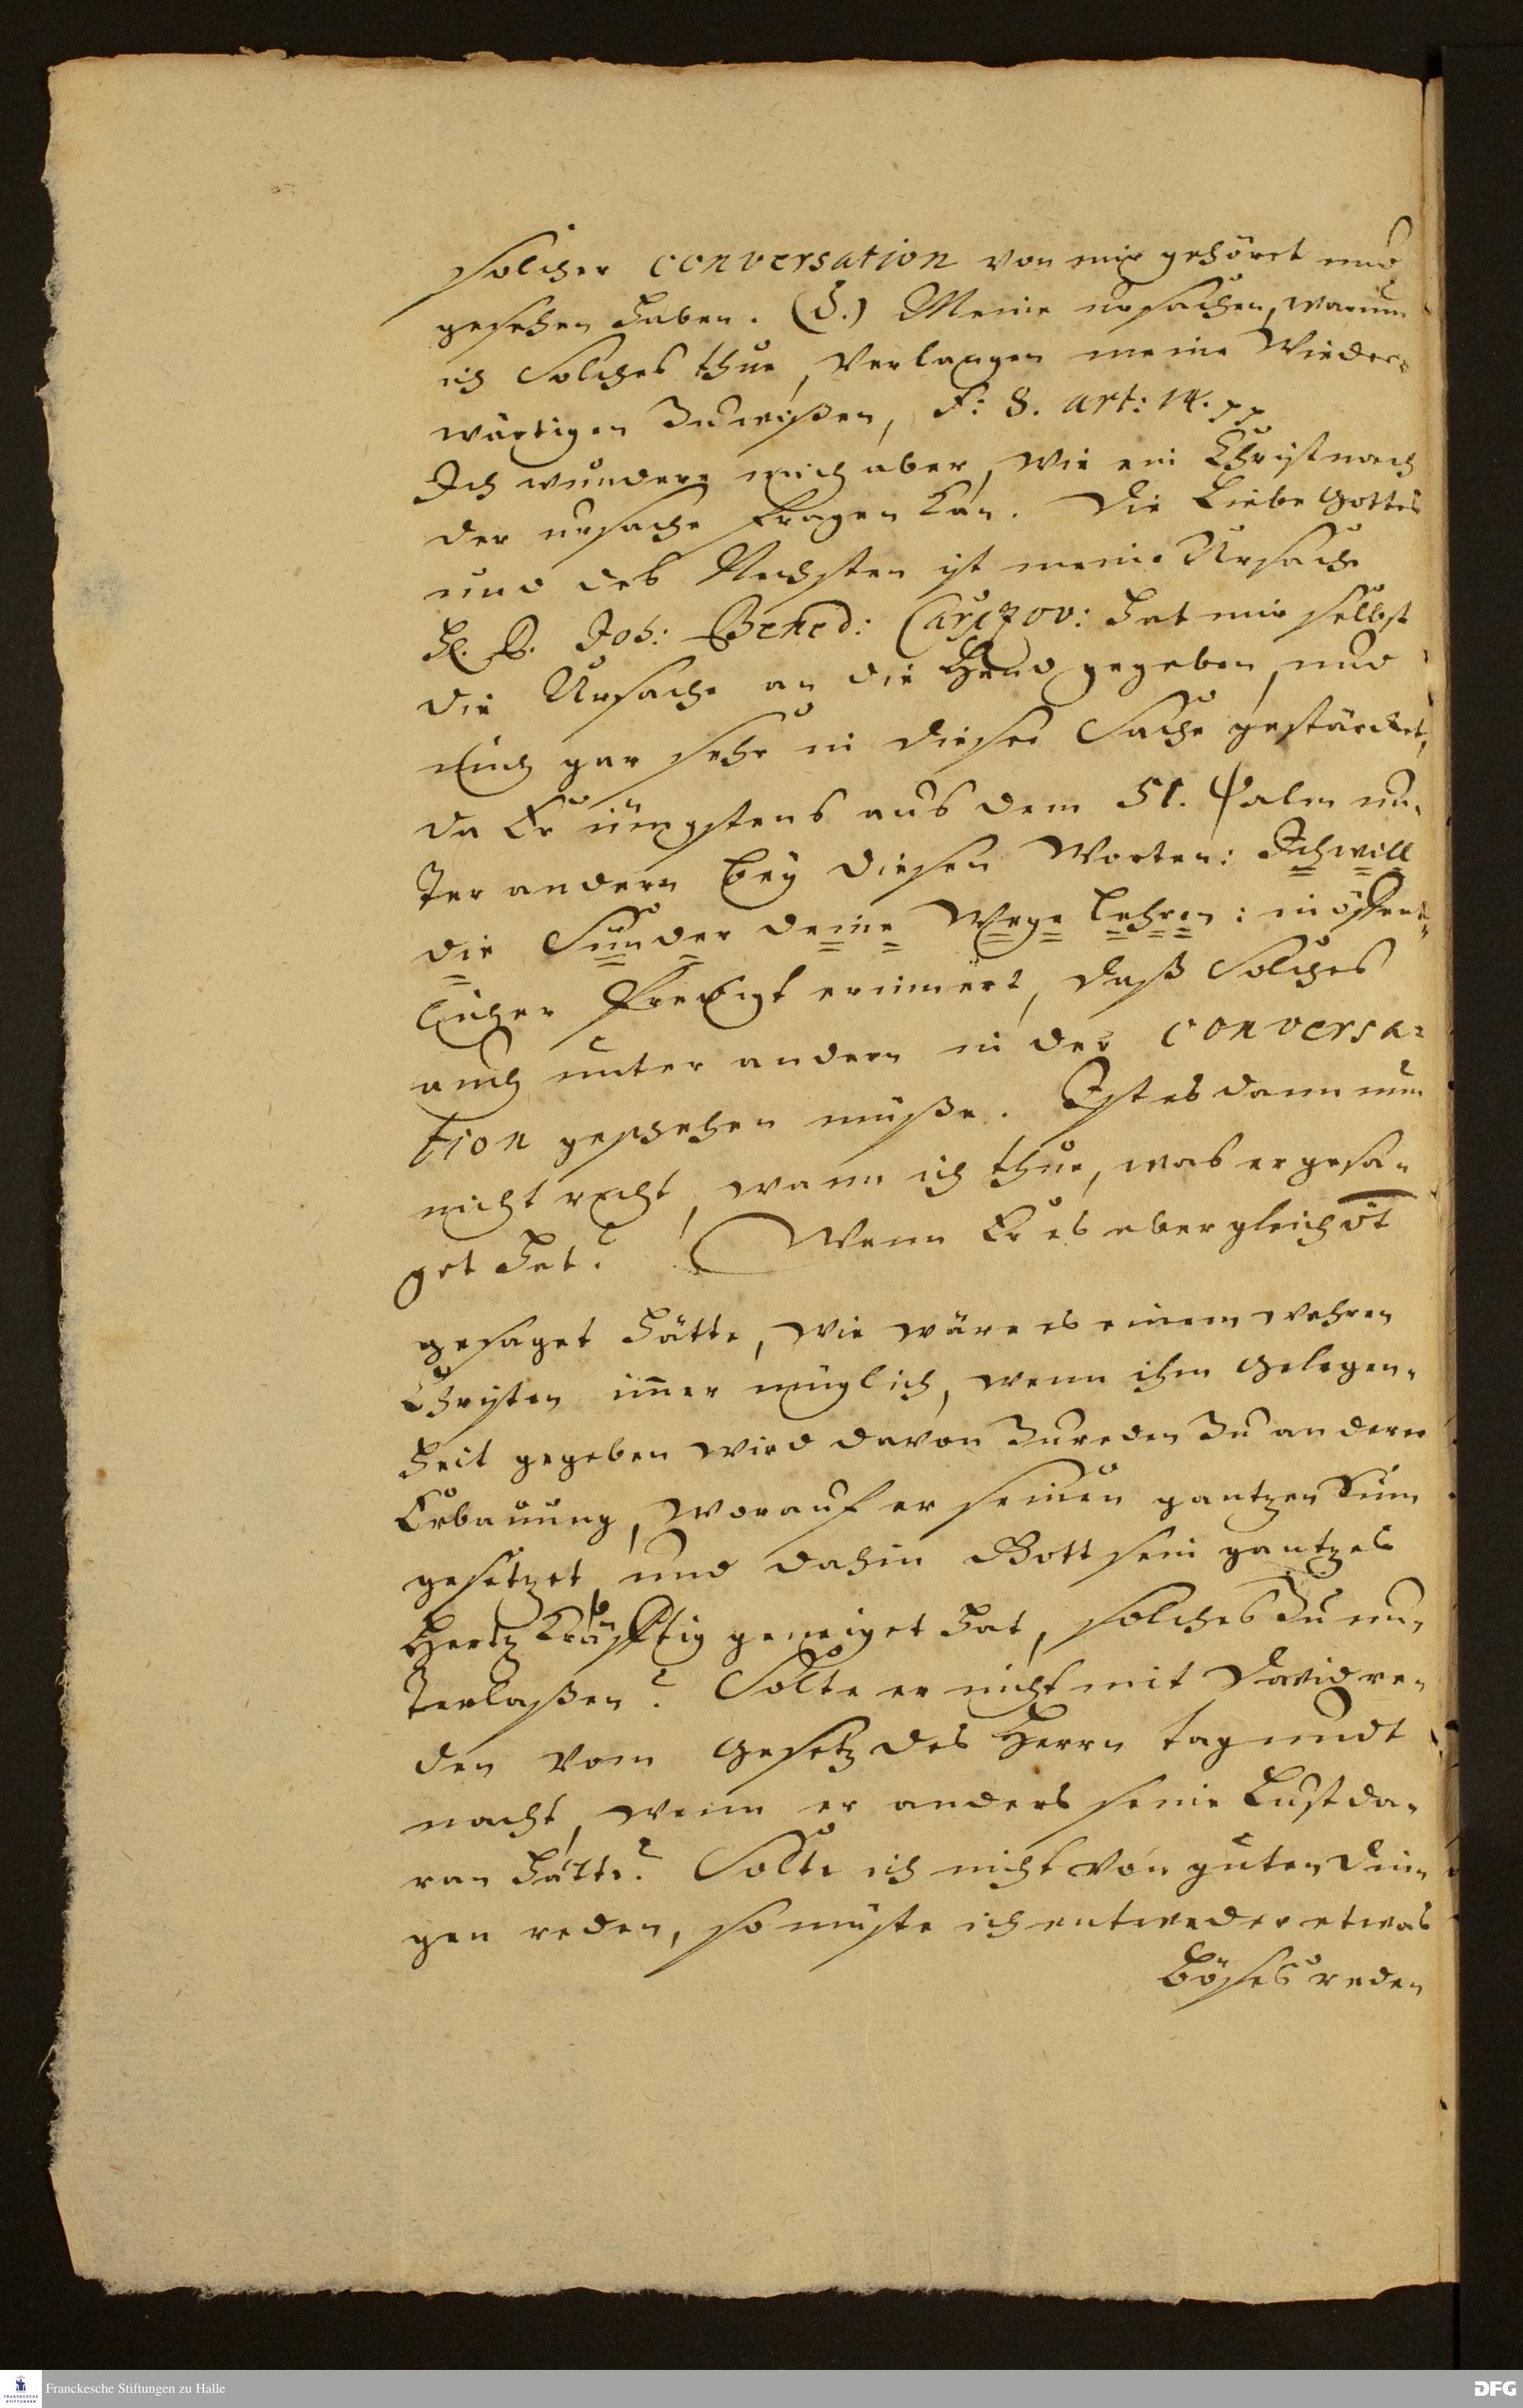 solcher conversation von mir gehöret und
gesehen haben. (3.) Meine ursachen, warum
ich Solches thue, verlangen meine Wieder-
wärtigen Zuwißen, F: 8. art: 14. pp
Ich wundere mich aber, wie ein Christ nach
der ursache fragen kan. Die Liebe Gottes
und des Nechsten ist meine Ursache
H. D. Joh: Bened: Carpzov: hat mir selbst
die Ursache an die Hand gegeben, und
mich gar sehr in dieser Sache gestärcket,
da Er jüngstens aus dem 51. Psalm un-
ter andern bey diesen Worten: Ich will
die Sünder deine Wege lehren: in öffent-
licher Predigt erinnert, daß Solches
auch unter andern in der conversa-
tion geschehen müße. Ist es dann nun
nicht recht, wann ich thue, was er gesa-
get hat? Wenn Er es aber gleich nit
gesaget hätte, wie wäre es einem wahren
Christen immer müglich, wenn ihm Gelegen-
heit gegeben wird davon Zureden Zu anderer
Erbauung, worauf er seinen gantzen Sinn
gesetzet, und dahin Gott sein gantzes
Hertz kräfftig geneiget hat, solches Zu un-
terlaßen? Solte er nicht mit David re-
den vom Gesetz des Herrn tag undt
nacht, wenn er anders seine Lust da-
ran hätte? Solte ich nicht von guten Din-
gen reden, so müste ich entweder etwas
böses reden
Franckesche Stiftungen zu Halle
DFG